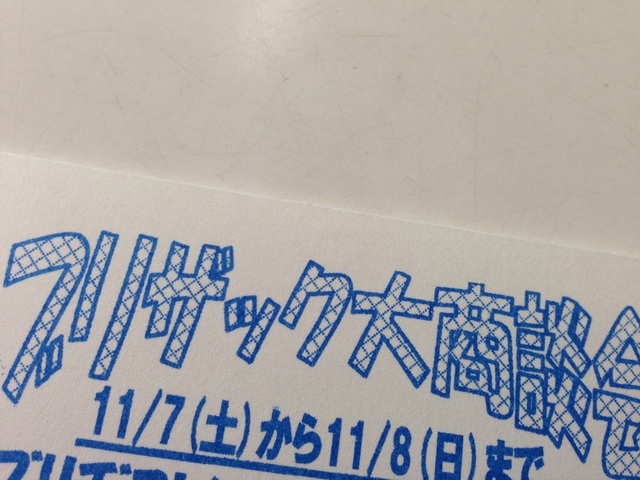 ブリザック大商談会
11/7(土)から11/8(日)まで